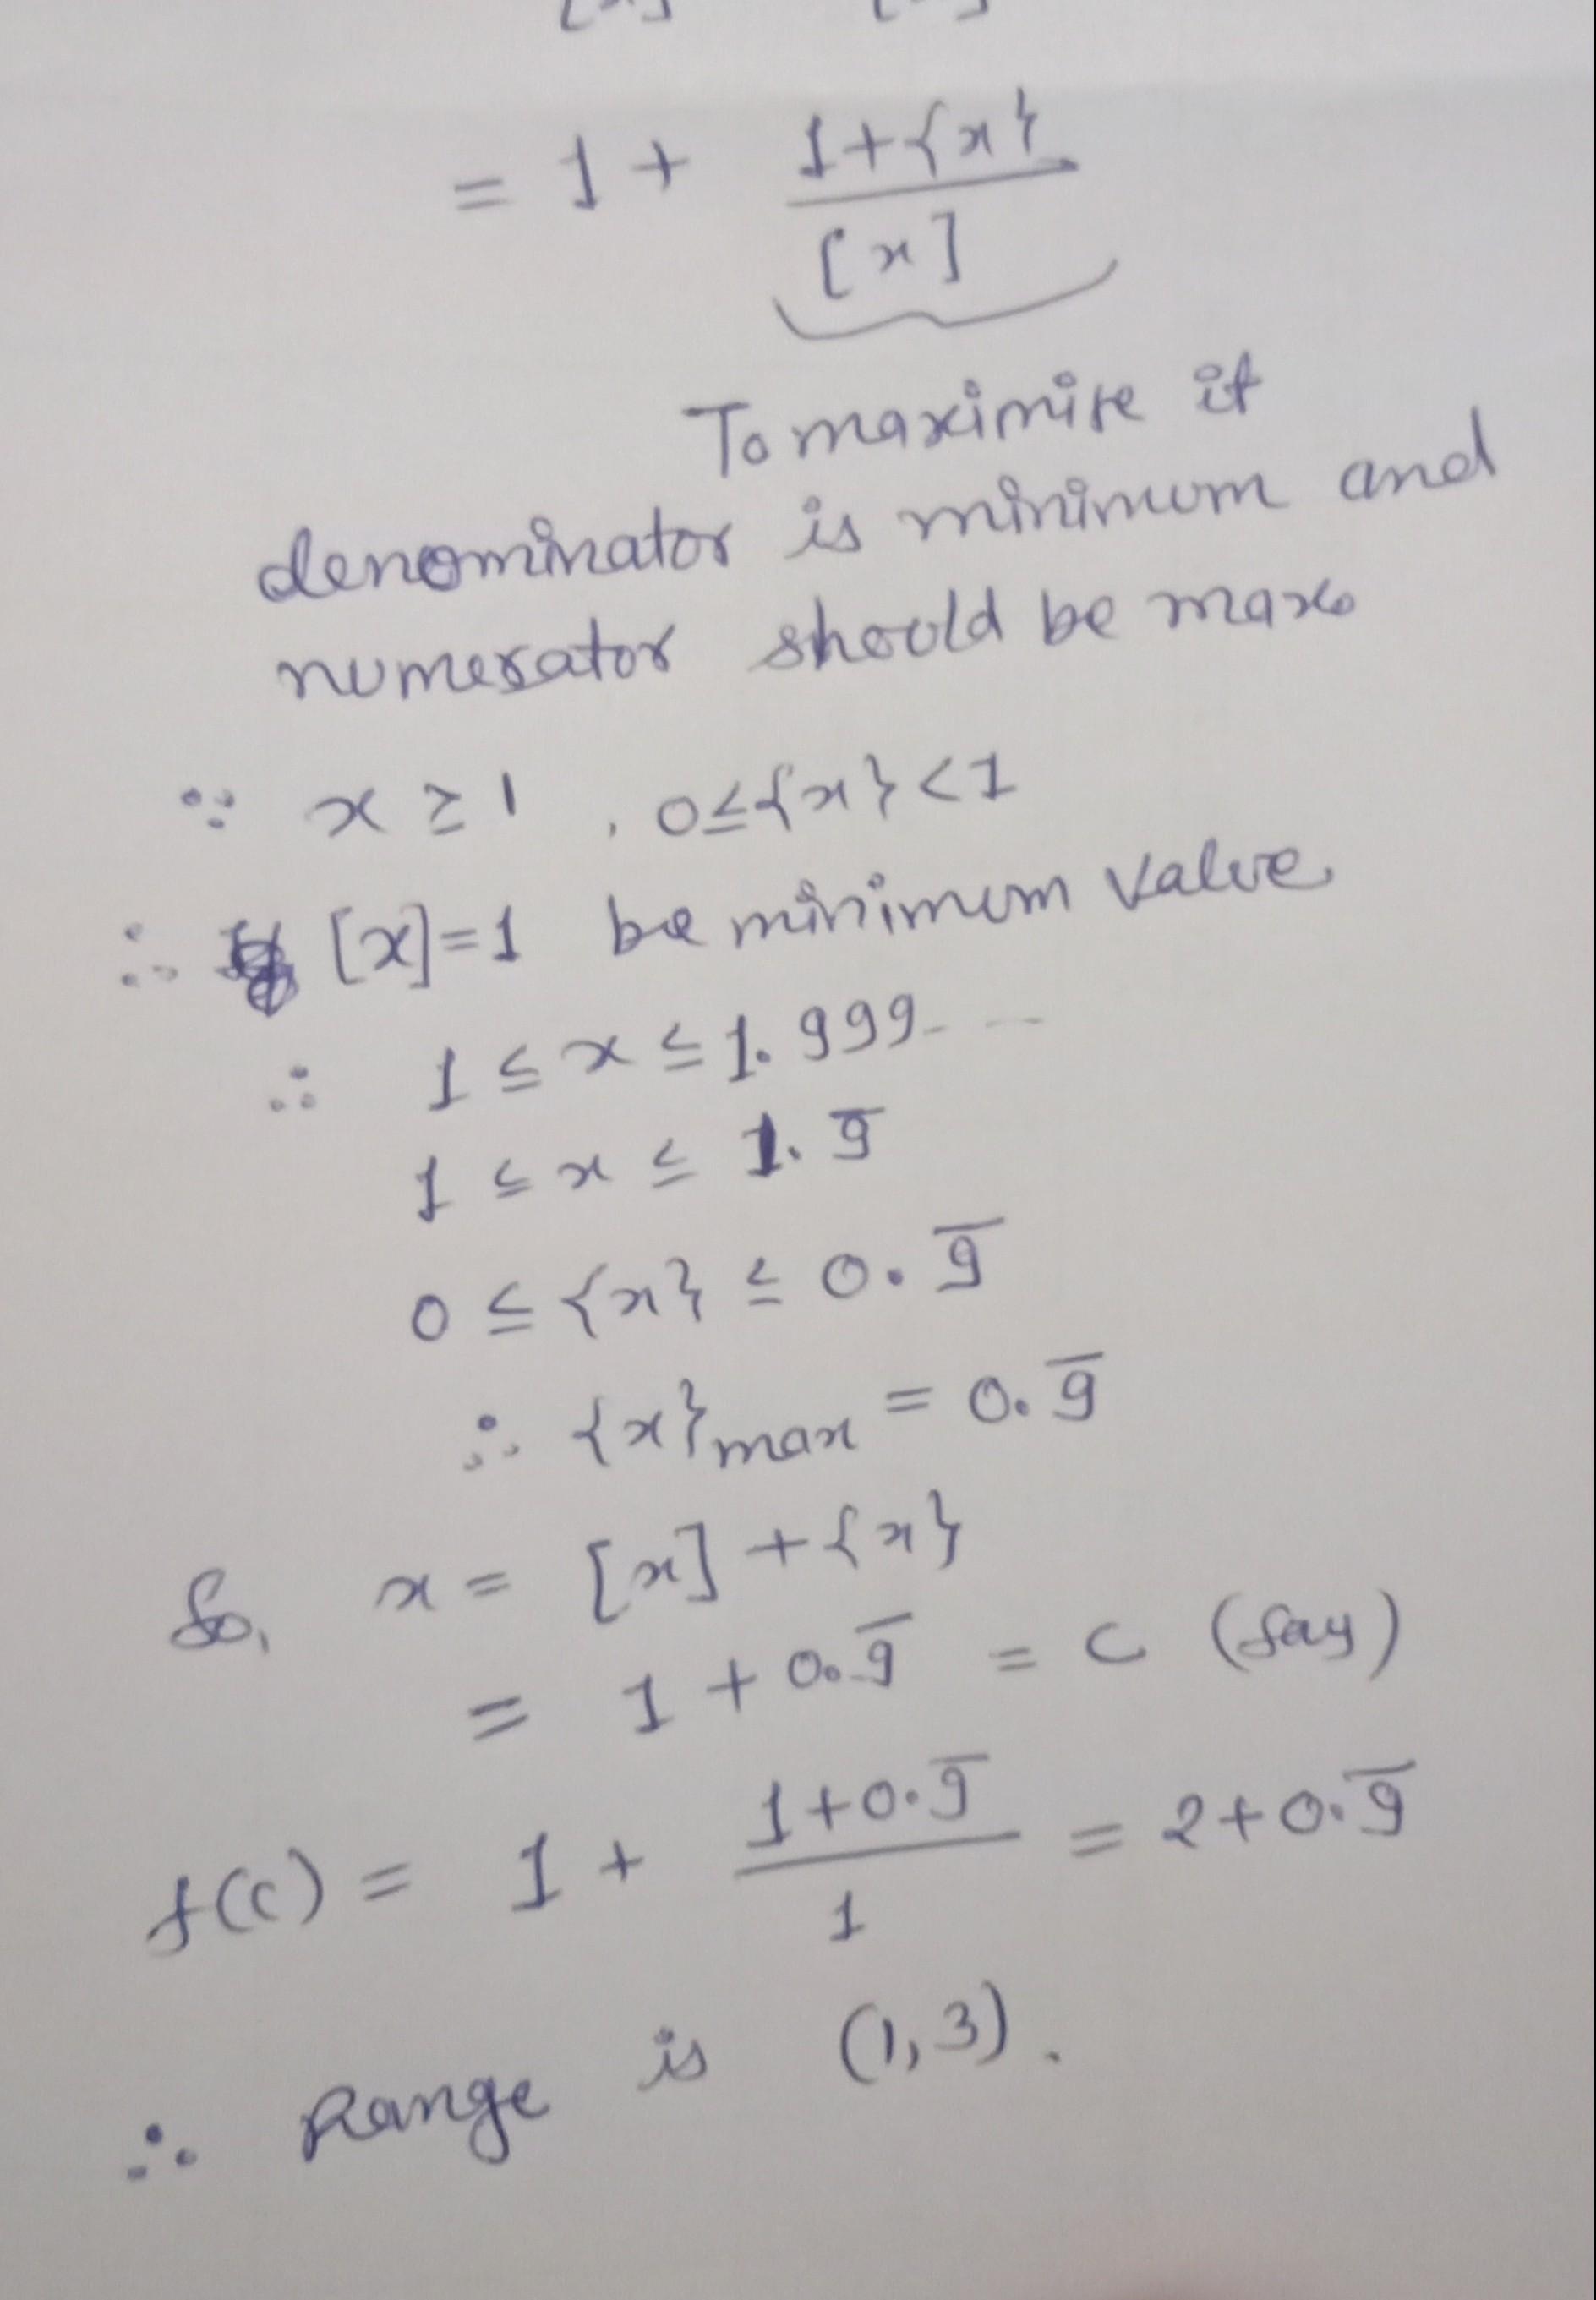 [x] [x]
= 1 + (1+{x})/[x]
To maximise it
denominator is minimum and
numerator should be max
∵ x ≥ 1, 0≤{x}<1
∴ [x]=1 be minimum value
∴ 1 ≤ x ≤ 1.999- --
1 ≤ x ≤ 1.9̅
0 ≤ {x} ≤ 0.9̅
∴ {x}max = 0.9̅
So, x = [x] + {x}
= 1 + 0.9̅ = c (say)
f(c) = 1 + (1+0.9̅)/1 = 2+0.9̅
∴ Range is (1,3).